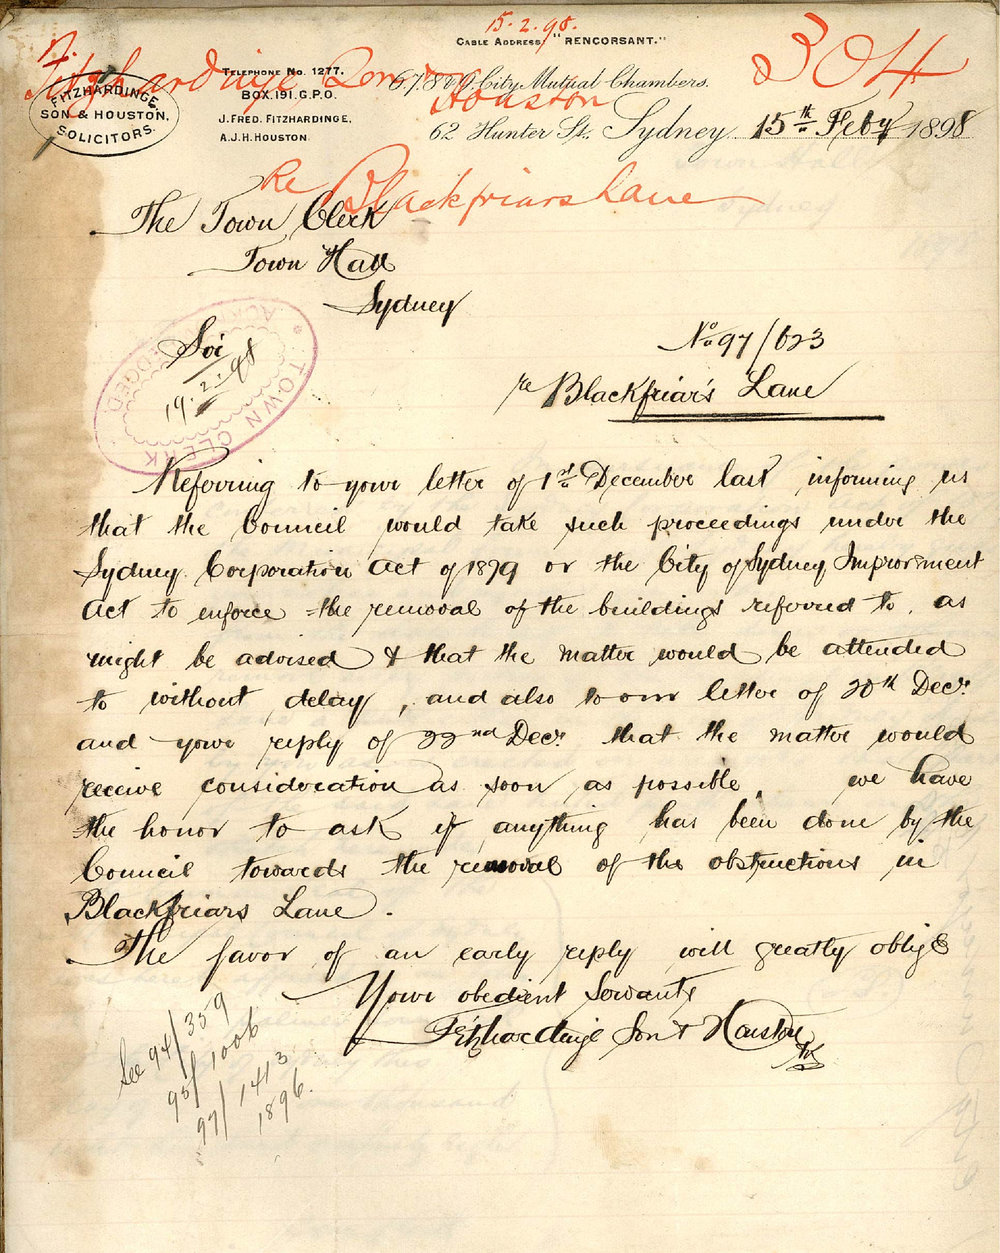 15.2.98.
CABLE ADDRESS, "RENCORSANT."
304
Fitzhardinge Son
Houston
FITZHARDINGE,
SON & HOUSTON,
SOLICITORS.
TELEPHONE No. 1277.
BOX. 191. G.P.O.
J. FRED. FITZHARDINGE,
A.J.H. HOUSTON.
6.7.8 & 9. City Mutual Chambers.
62 Hunter St. Sydney 15th Feby 1898
Re Blackfriars Lane
The Town Clerk
Town Hall
Sydney
TOWN CLERK
ACKNOWLEDGED.
19.2.98
No 97/623
re Blackfriar's Lane
Referring to your letter of 1st December last informing us
that the Council would take such proceedings under the
Sydney Corporation Act of 1879 or the City of Sydney Improvement
Act to enforce the removal of the buildings referred to, as
might be advised & that the matter would be attended
to without delay, and also to our letter of 20th Decr.
and your reply of 22nd Decr. that the matter would
receive consideration as soon as possible, we have
the honor to ask if anything has been done by the
Council towards the removal of the obstructions in
Blackfriars Lane.
The favor of an early reply will greatly oblige
Your obedient Servants
Fitzhardinge Son & Houston
See 94/359
95/1006
97/1413
1896.